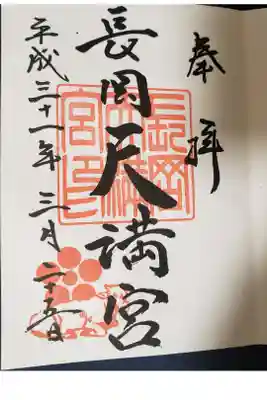 奉拝
長岡天満宮
平成三十一年三月二十五日
長岡天満宮印